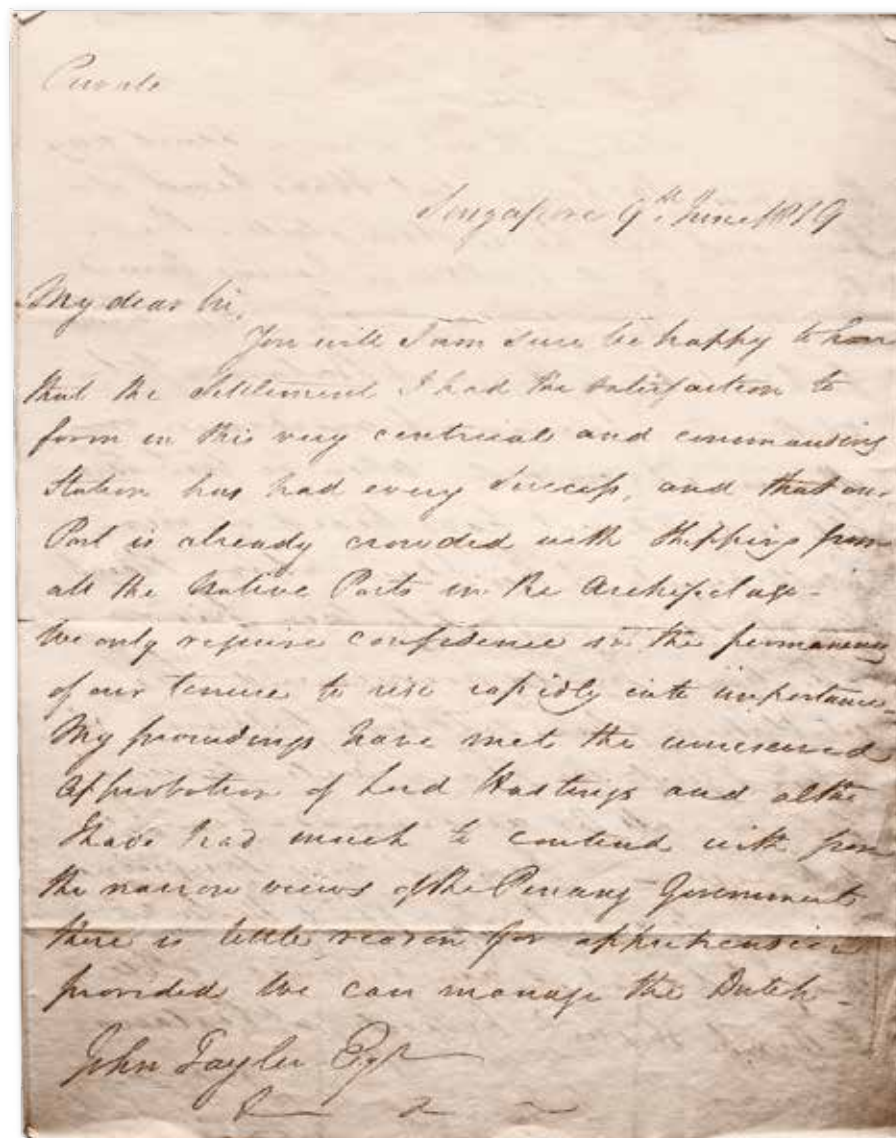 Private
Singapore 9th June 1819
My dear Sir,
You will I am sure be happy to hear
that the Settlement I had the satisfaction to
form in this very centrical and commanding
Station has had every Success, and that our
Port is already crowded with Shipping from
all the Native Ports in the Archipelago -
We only require confidence in the permanency
of our tenure to rise rapidly into importance -
My proceedings have met the unreserved
Approbation of Lord Hastings and altho
I have had much to contend with from
the narrow views of the Penang Government
there is little reason for apprehension
provided we can manage the Dutch -
John Tayler Esqr